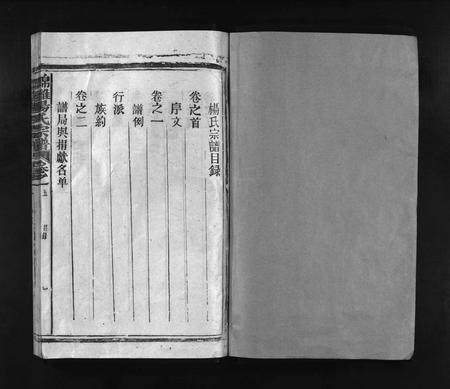 楊氏宗譜目録
卷之首
序文
卷之一
譜例
行派
族約
卷之二
譜局與捐獻名单
楊氏宗譜
五
目録